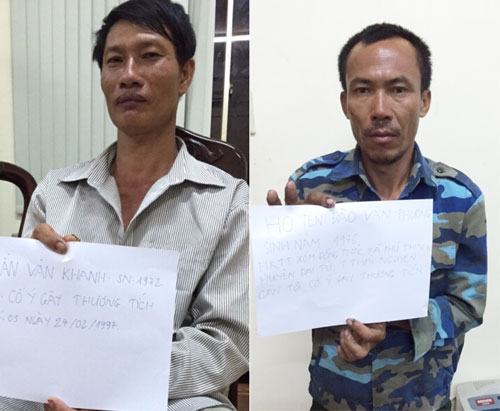 ẦN VĂN KHANH - SN: 1972
CỐ Ý GÂY THƯƠNG TÍCH
03 NGÀY 24/02/1997.
HỌ TÊN ĐÀO VĂN
SINH NĂM 1976,
HKTT XÓM ĐỒNG XÃ PHÚ
HUYỆN ĐẠI TỪ, T. THÁI NGUYÊN
CỐ Ý GÂY THƯƠNG TÍCH